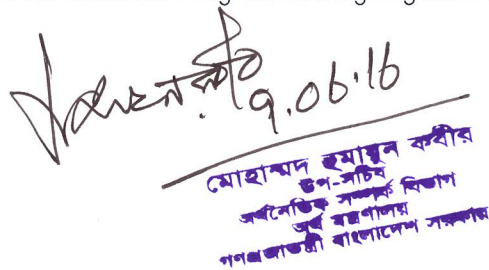 ৭.০৬.১৬
মোহাম্মদ হুমায়ুন কবীর
উপ-সচিব
অর্থনৈতিক সম্পর্ক বিভাগ
অর্থ মন্ত্রণালয়
গণপ্রজাতন্ত্রী বাংলাদেশ সরকার